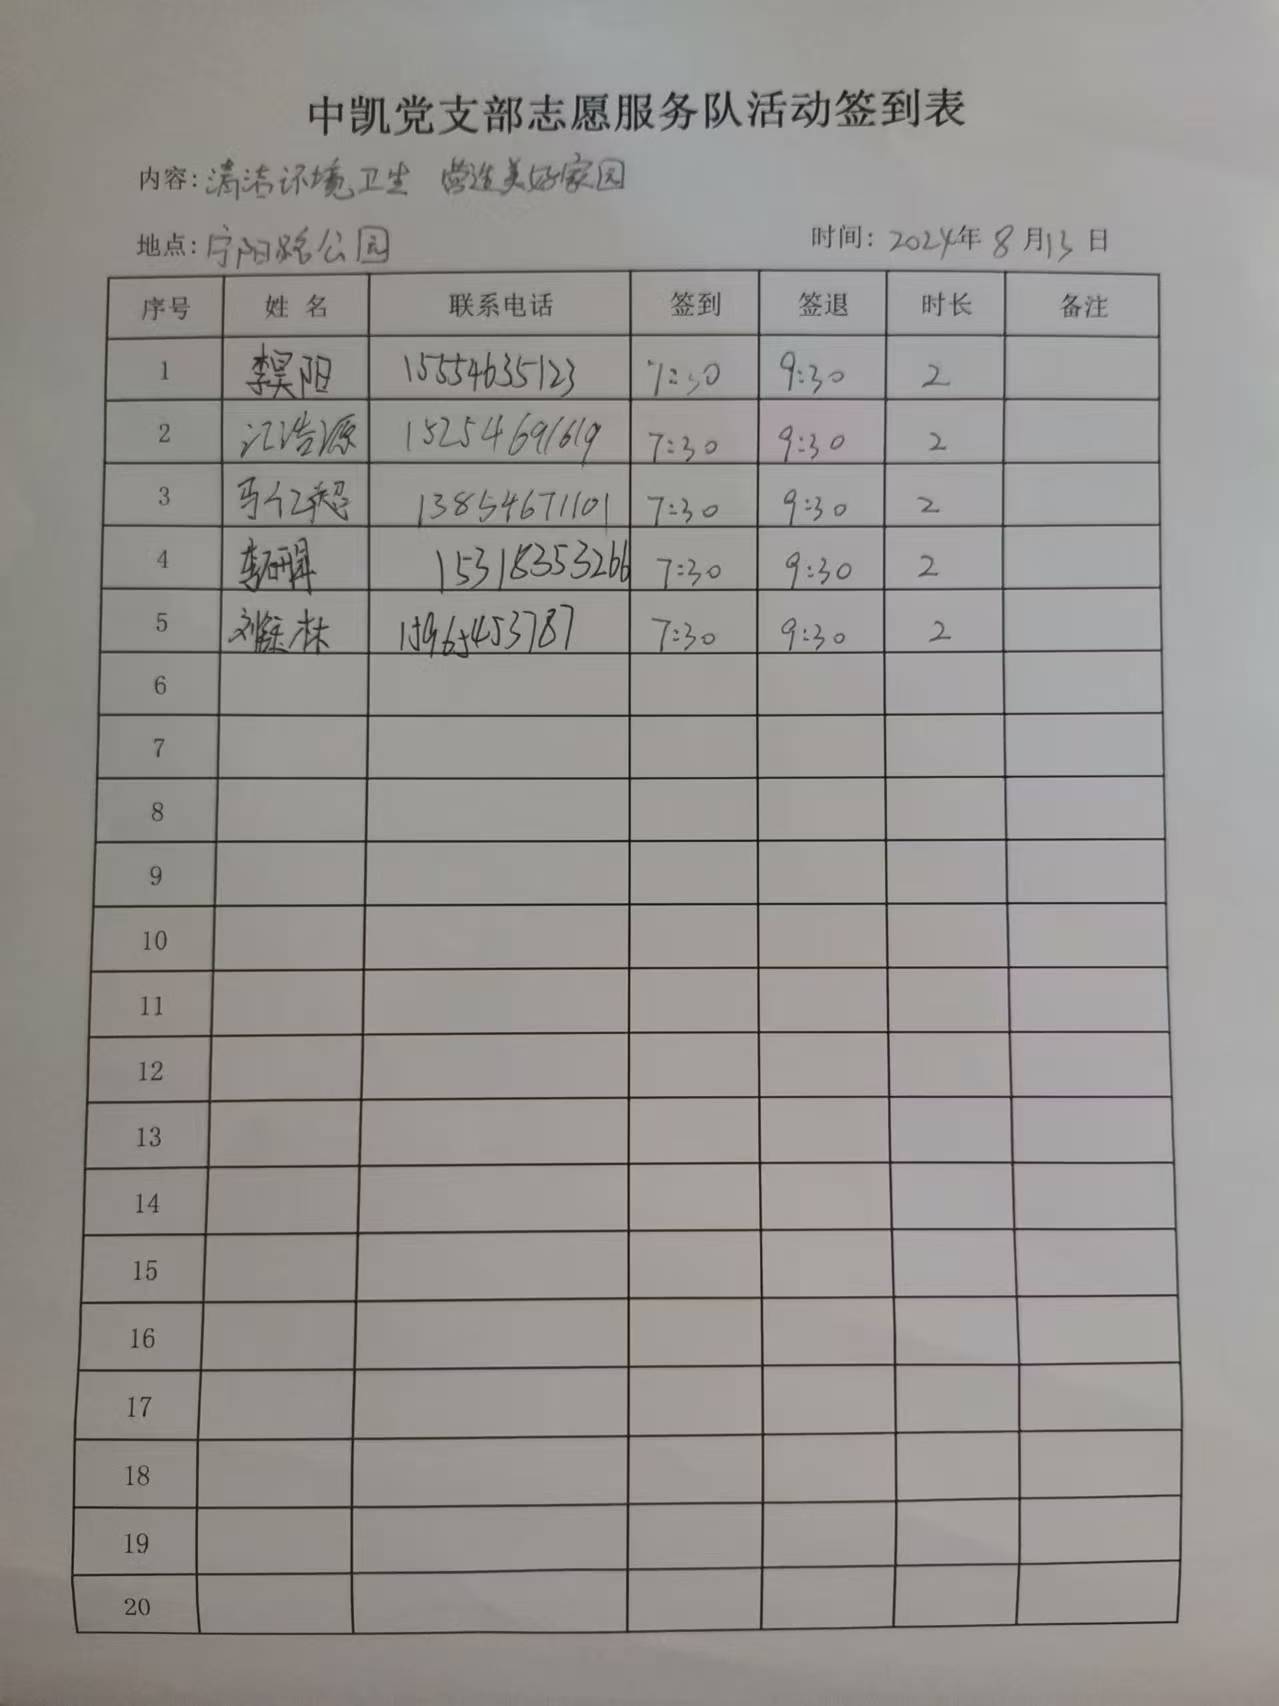 中凯党支部志愿服务队活动签到表
内容:清洁环境卫生 营造美好家园
地点:宁阳路公园 时间:2024年8月13日
序号 姓名 联系电话 签到 签退 时长 备注
1 李昊阳 15554635123 7:30 9:30 2
2 江浩源 15254691619 7:30 9:30 2
3 马仁超 13854671101 7:30 9:30 2
4 15318353266 7:30 9:30 2
5 15965453787 7:30 9:30 2
6
7
8
9
10
11
12
13
14
15
16
17
18
19
20